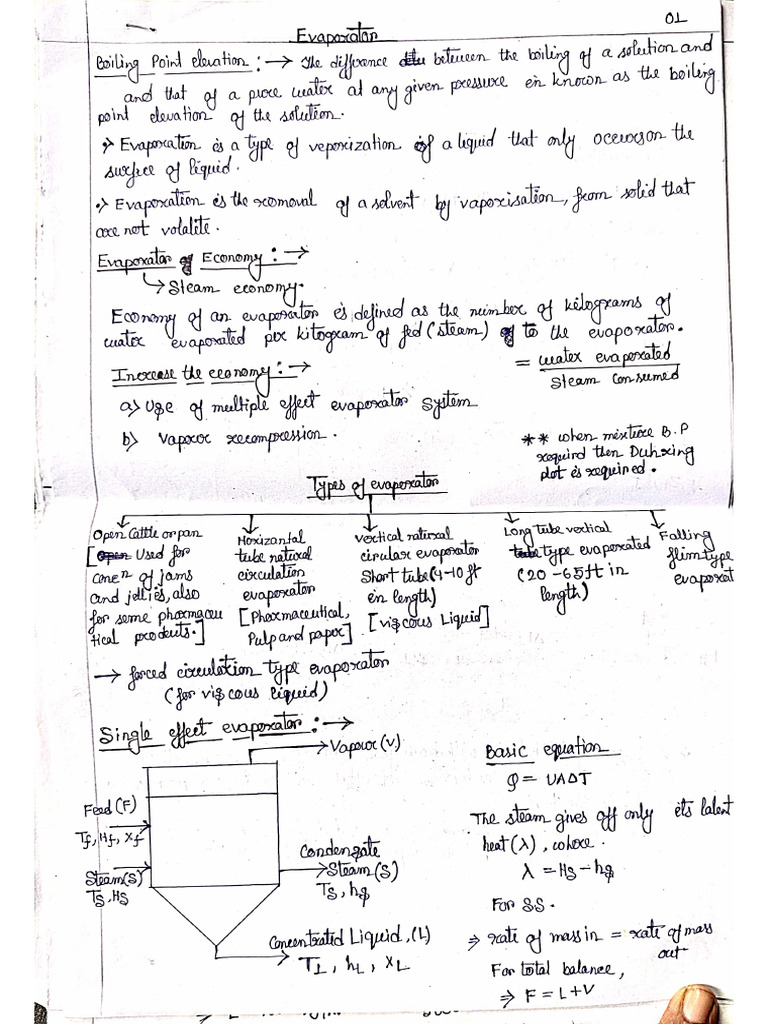 01
Evaporator
Boiling Point elevation :→ The difference between the boiling of a solution and
and that of a pure water at any given pressure in known as the boiling
point elevation of the solution.
Evaporation is a type of veporization of a liquid that only occurs on the
surface of liquid.
Evaporation is the removal of a solvent by vaporisation, from solid that
are not volatile.
Evaporator Economy :→
Steam economy.
Economy of an evaporator is defined as the number of kilograms of
water evaporated per kitogram of fed (steam) to the evaporator.
= water evaporated
Steam Consumed
Increase the economy :→
a) Use of multiple effect evaporator System
b) Vapour recompression.
** when mixture B.P
required then Duhring
plot is required.
Types of evaporator
Open Cattle or pan
[Used for
concn of jams
and jellies, also
for some pharmaceu
tical products.]
Horizantal
tube natural
circulation
evaporator
[Pharmaceutical,
Pulp and paper]
vertical natural
circular evaporator
Short tube (4-10 ft
in length)
[viscous Liquid]
Long tube vertical
type evaporated
(20-65ft in
length)
Falling
flim type
evaporat
→ forced circulation type evaporator
(for viscous liquid)
Single effect evaporator :→
Vapour (V)
Feed (F)
Tf, Hf, Xf
Steam(S)
Ts, Hs
Condensate
Steam (S)
Ts, hs
Concentrated Liquid, (L)
TL, hL, XL
Basic equation
Q = UAΔT
The steam gives off only its latent
heat (λ), where.
λ = Hs - hs
For S.S.
⇒ rate of mass in = rate of mass
out
For total balance,
⇒ F = L+V